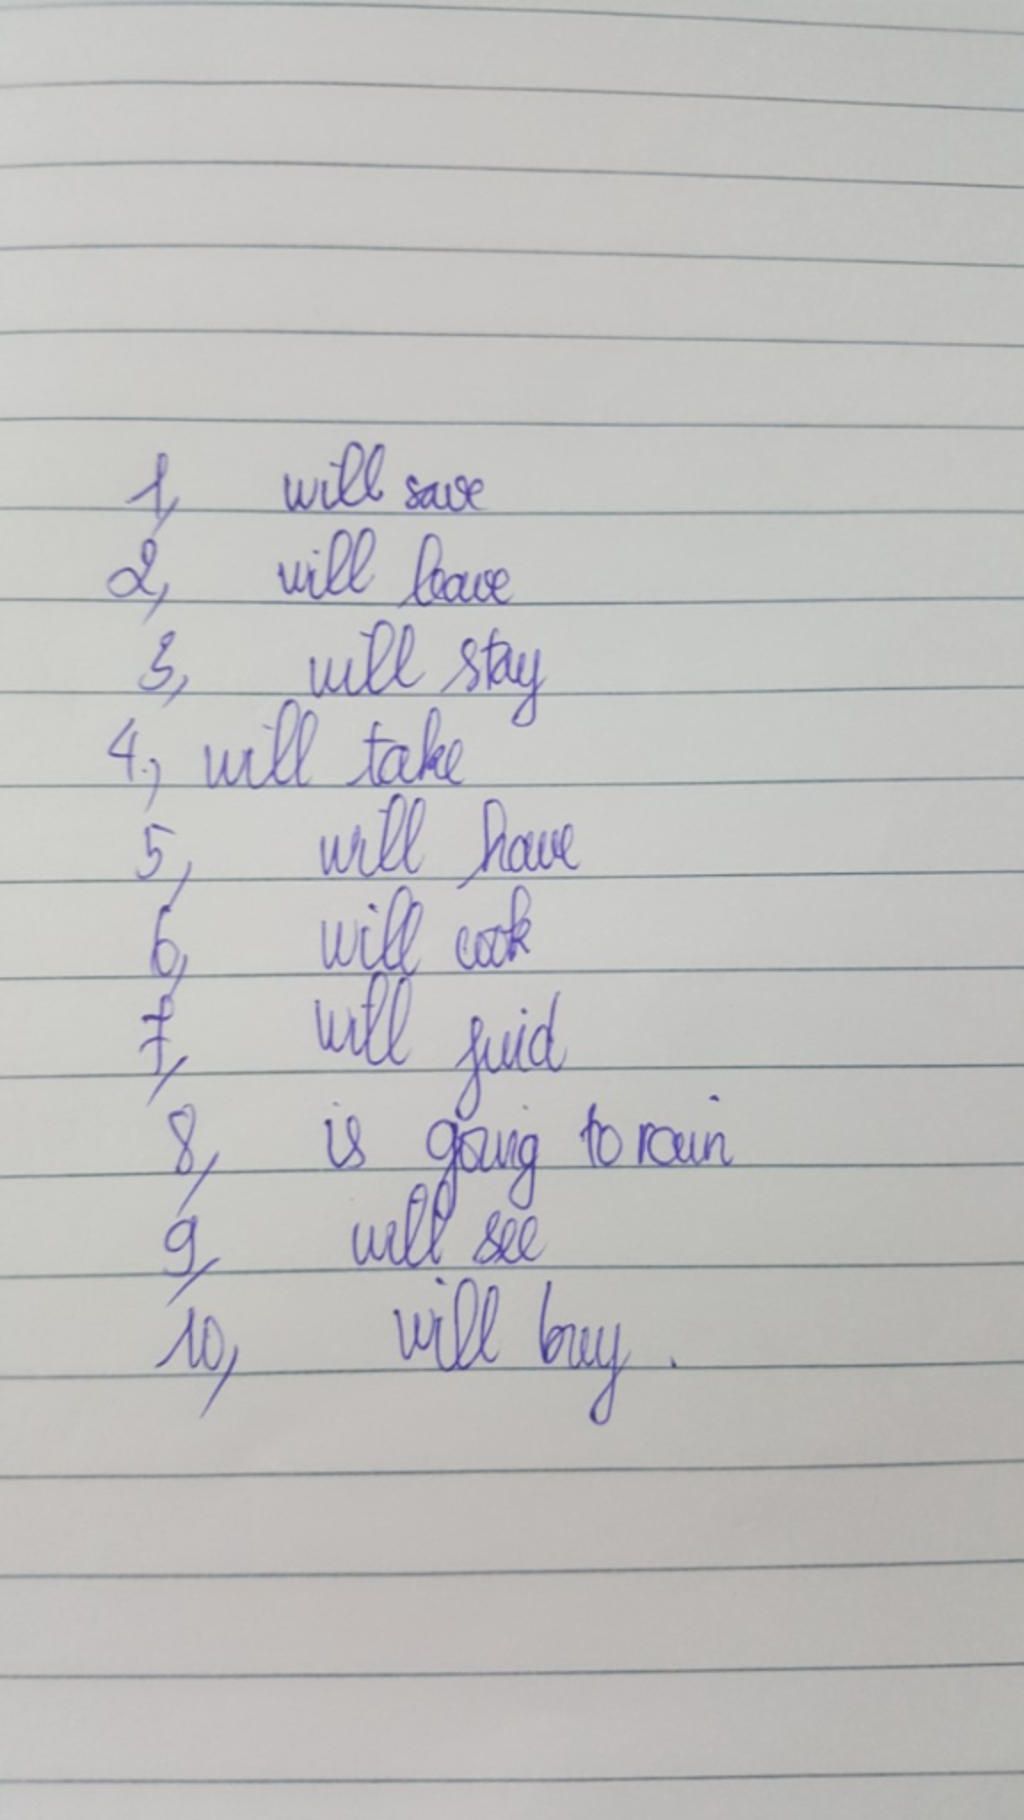 1, will save
2, will leave
3, will stay
4, will take
5, will have
6, will cook
7, will
8, is going to rain
9, will see
10, will buy.